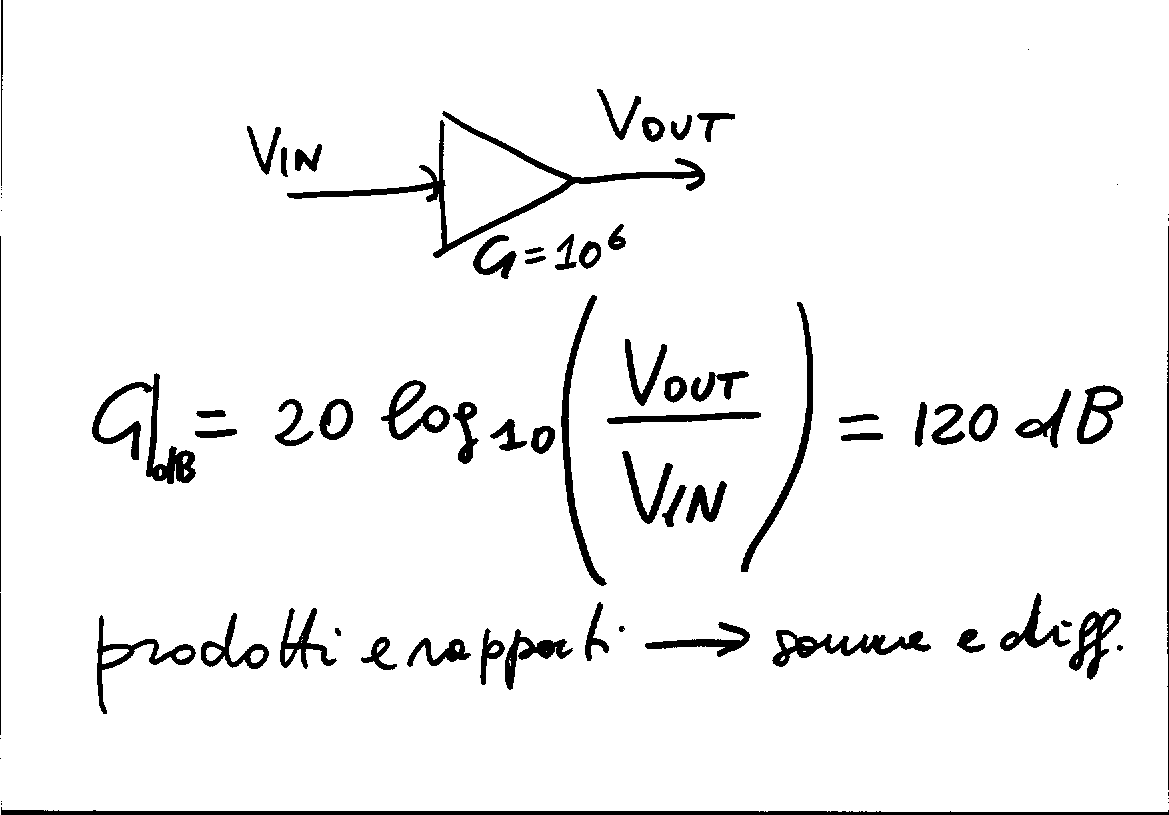 VIN VOUT
G=10⁶
G|dB = 20 log₁₀ (VOUT / VIN) = 120 dB
prodotti e rapporti → somme e diff.